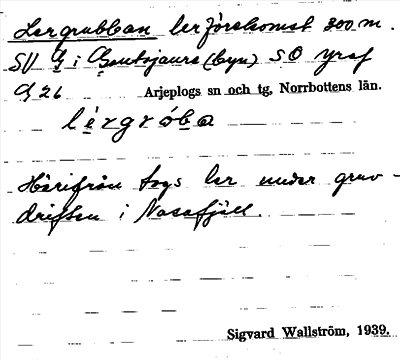 Lergrubban lerförekomst 300 m.
SV G i Bautojaure (byn) SO yraf
G 26 Arjeplogs sn och tg, Norrbottens län.
lèrgróba
Härifrån togs ler under gruv-
driften i Nasafjäll.
Sigvard Wallström, 1939.